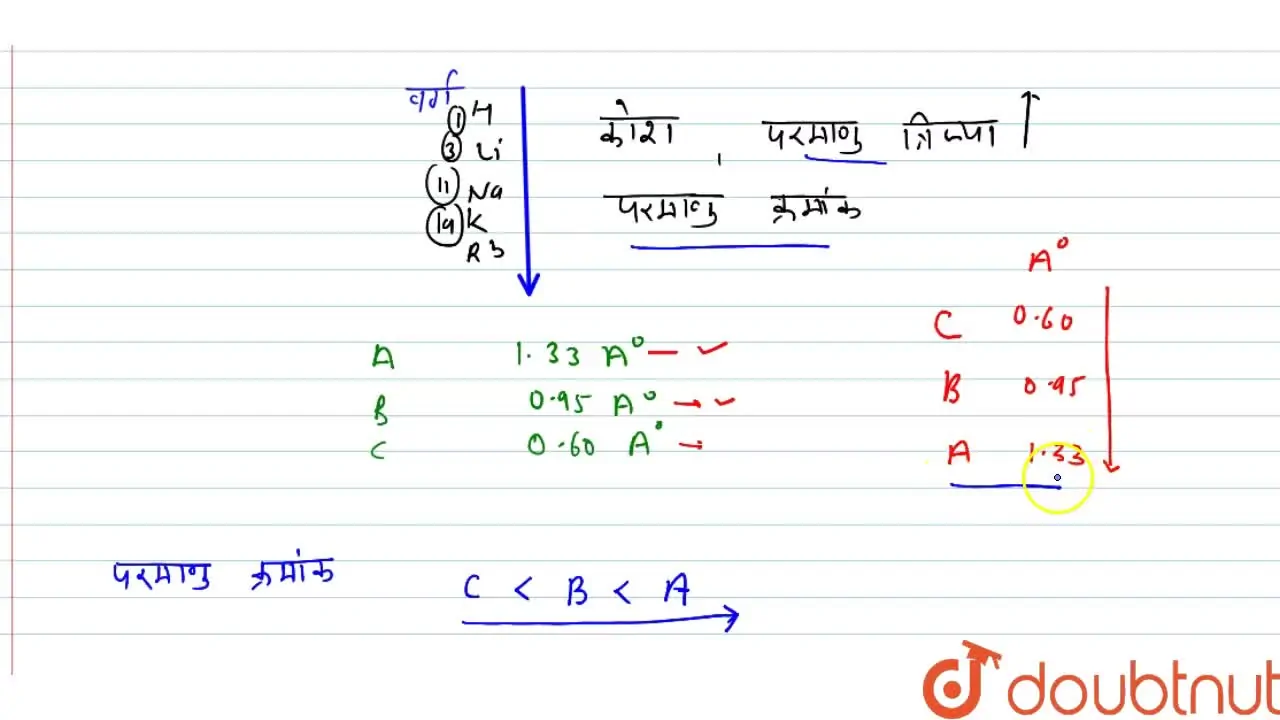 वर्ग
① H
③ Li
⑪ Na
⑲ K
Rb
कोश , परमाणु त्रिज्या ↑
परमाणु क्रमांक
A 1.33 A° — ✓
B 0.95 A° → ✓
C 0.60 A° →
A°
C 0.60
B 0.95
A 1.33
परमाणु क्रमांक C < B < A
doubtnut